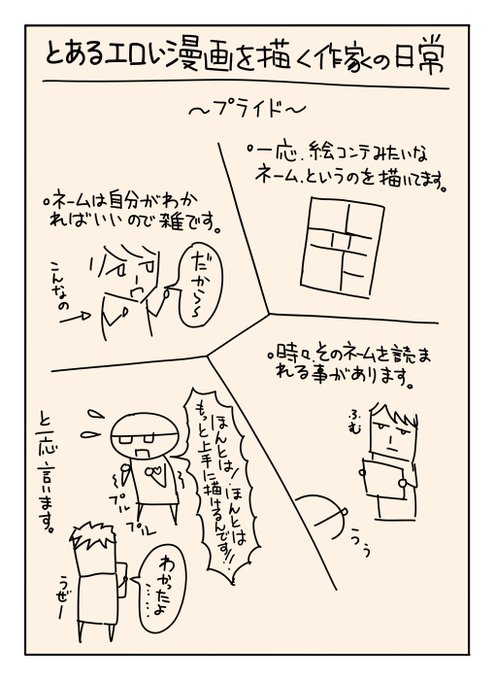 とあるエロい漫画を描く作家の日常
〜プライド〜
一応、絵コンテみたいな
ネーム、というのを描いてます。
ネームは自分がわか
ればいいので雑です。
こんなの
だから〜
時々、そのネームを読ま
れる事があります。
ふむ
うぅ
ほんとは!ほんとは
もっと上手に描けるんです!!
プル
プル
と一応言います。
わかったよ
……
うぜー